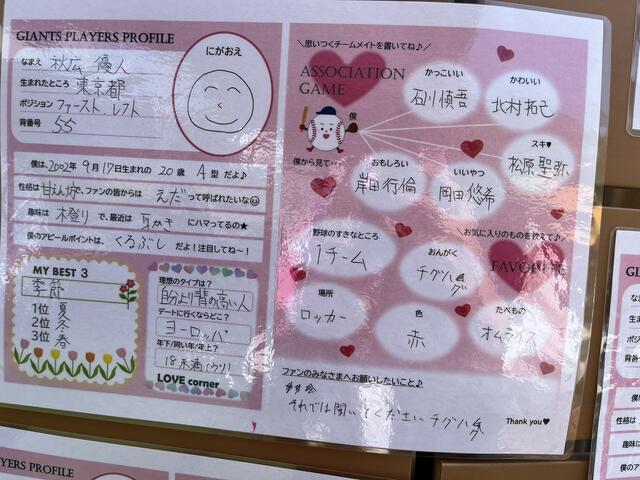 GIANTS PLAYERS PROFILE
なまえ 秋広 優人
生まれたところ 東京都
ポジション ファースト、レフト
背番号 55
にがおえ
僕は、2002年 9月17日生まれの 20歳 A型だよ♪
性格は 甘えん坊で、ファンの皆からは えだ って呼ばれたいな
趣味は 木登り で、最近は 耳かき にハマってるの★
僕のアピールポイントは、くるぶし だよ!注目してね~!
MY BEST 3
季節
1位 夏
2位 冬
3位 春
理想のタイプは?
自分より背の高い人
デートに行くならどこ?
ヨーロッパ
年下/同い年/年上?
18未満(ウソ)
LOVE corner
＼思いつくチームメイトを書いてね♪／
ASSOCIATION
GAME
僕
僕から見て…
かっこいい
石川慎吾
かわいい
北村拓己
スキ♥
松原聖弥
いいやつ
岡田悠希
おもしろい
岸田行倫
＼お気に入りのものを教えて♪／
FAVORITE
野球のすきなところ
1チーム
おんがく
チグハグ
場所
ロッカー
色
赤
たべもの
オムライス
ファンのみなさまへお願いしたいこと♪
それでは聞いてください チグハグ
Thank you♥
YERS PROFILE